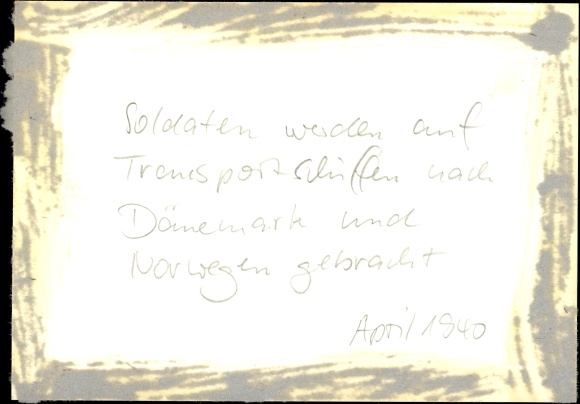 Soldaten werden auf
Transportschiffen nach
Dänemark und
Norwegen gebracht
April 1940